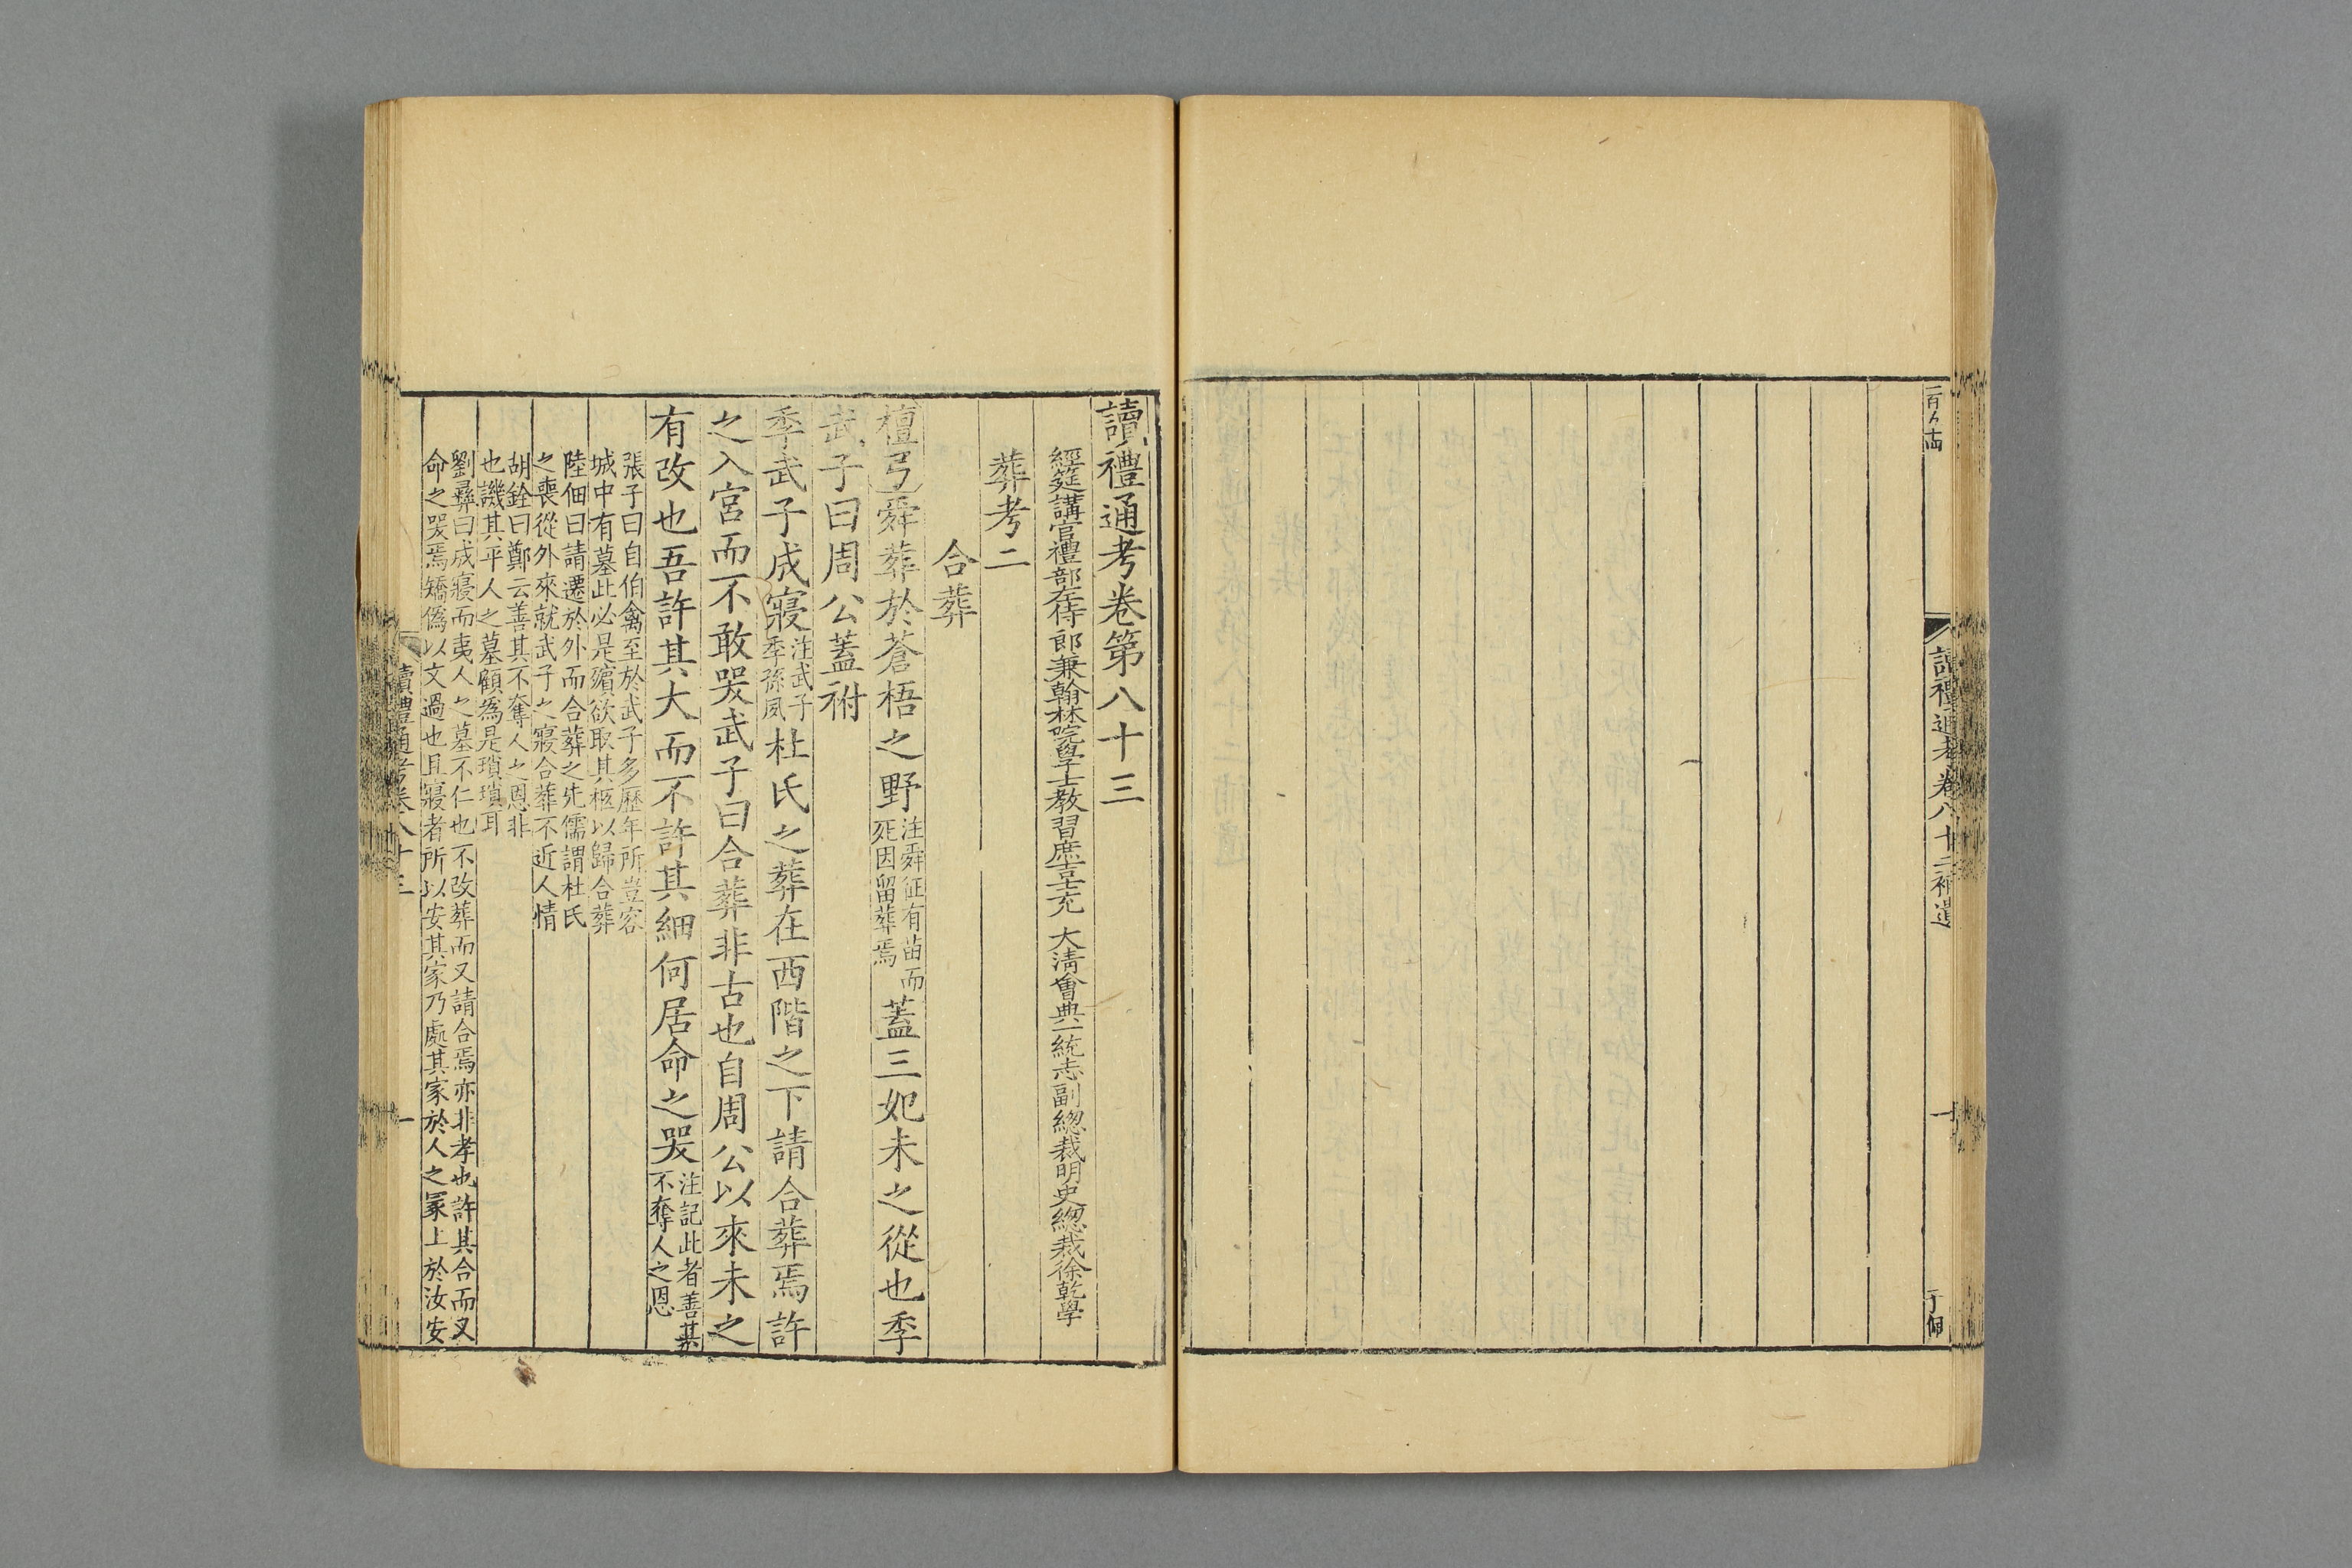 讀禮通考卷八十二補遺
一
讀禮通考卷第八十三
經筵講官禮部左侍郎兼翰林院學士教習庶吉士充 大清會典一統志副總裁明史總裁徐乾學
葬考二
合葬
檀弓舜葬於蒼梧之野注舜征有苗而死因留葬焉蓋三妃未之從也季
武子曰周公蓋祔
季武子成寢注武子季孫夙杜氏之葬在西階之下請合葬焉許
之入宮而不敢哭武子曰合葬非古也自周公以來未之
有改也吾許其大而不許其細何居命之哭注記此者善其不奪人之恩
張子曰自伯禽至於武子多歷年所豈容
城中有墓此必是殯欲取其柩以歸合葬
陸佃曰請遷於外而合葬之先儒謂杜氏
之喪從外來就武子之寢合葬不近人情
胡銓曰鄭云善其不奪人之恩非
也譏其平人之墓顧為是瑣瑣耳
劉彝曰成寢而夷人之墓不仁也不改葬而又請合焉亦非孝也許其合而又
命之哭焉矯偽以文過也且寢者所以安其家乃處其家於人之冢上於汝安
讀禮通考卷八十三
一